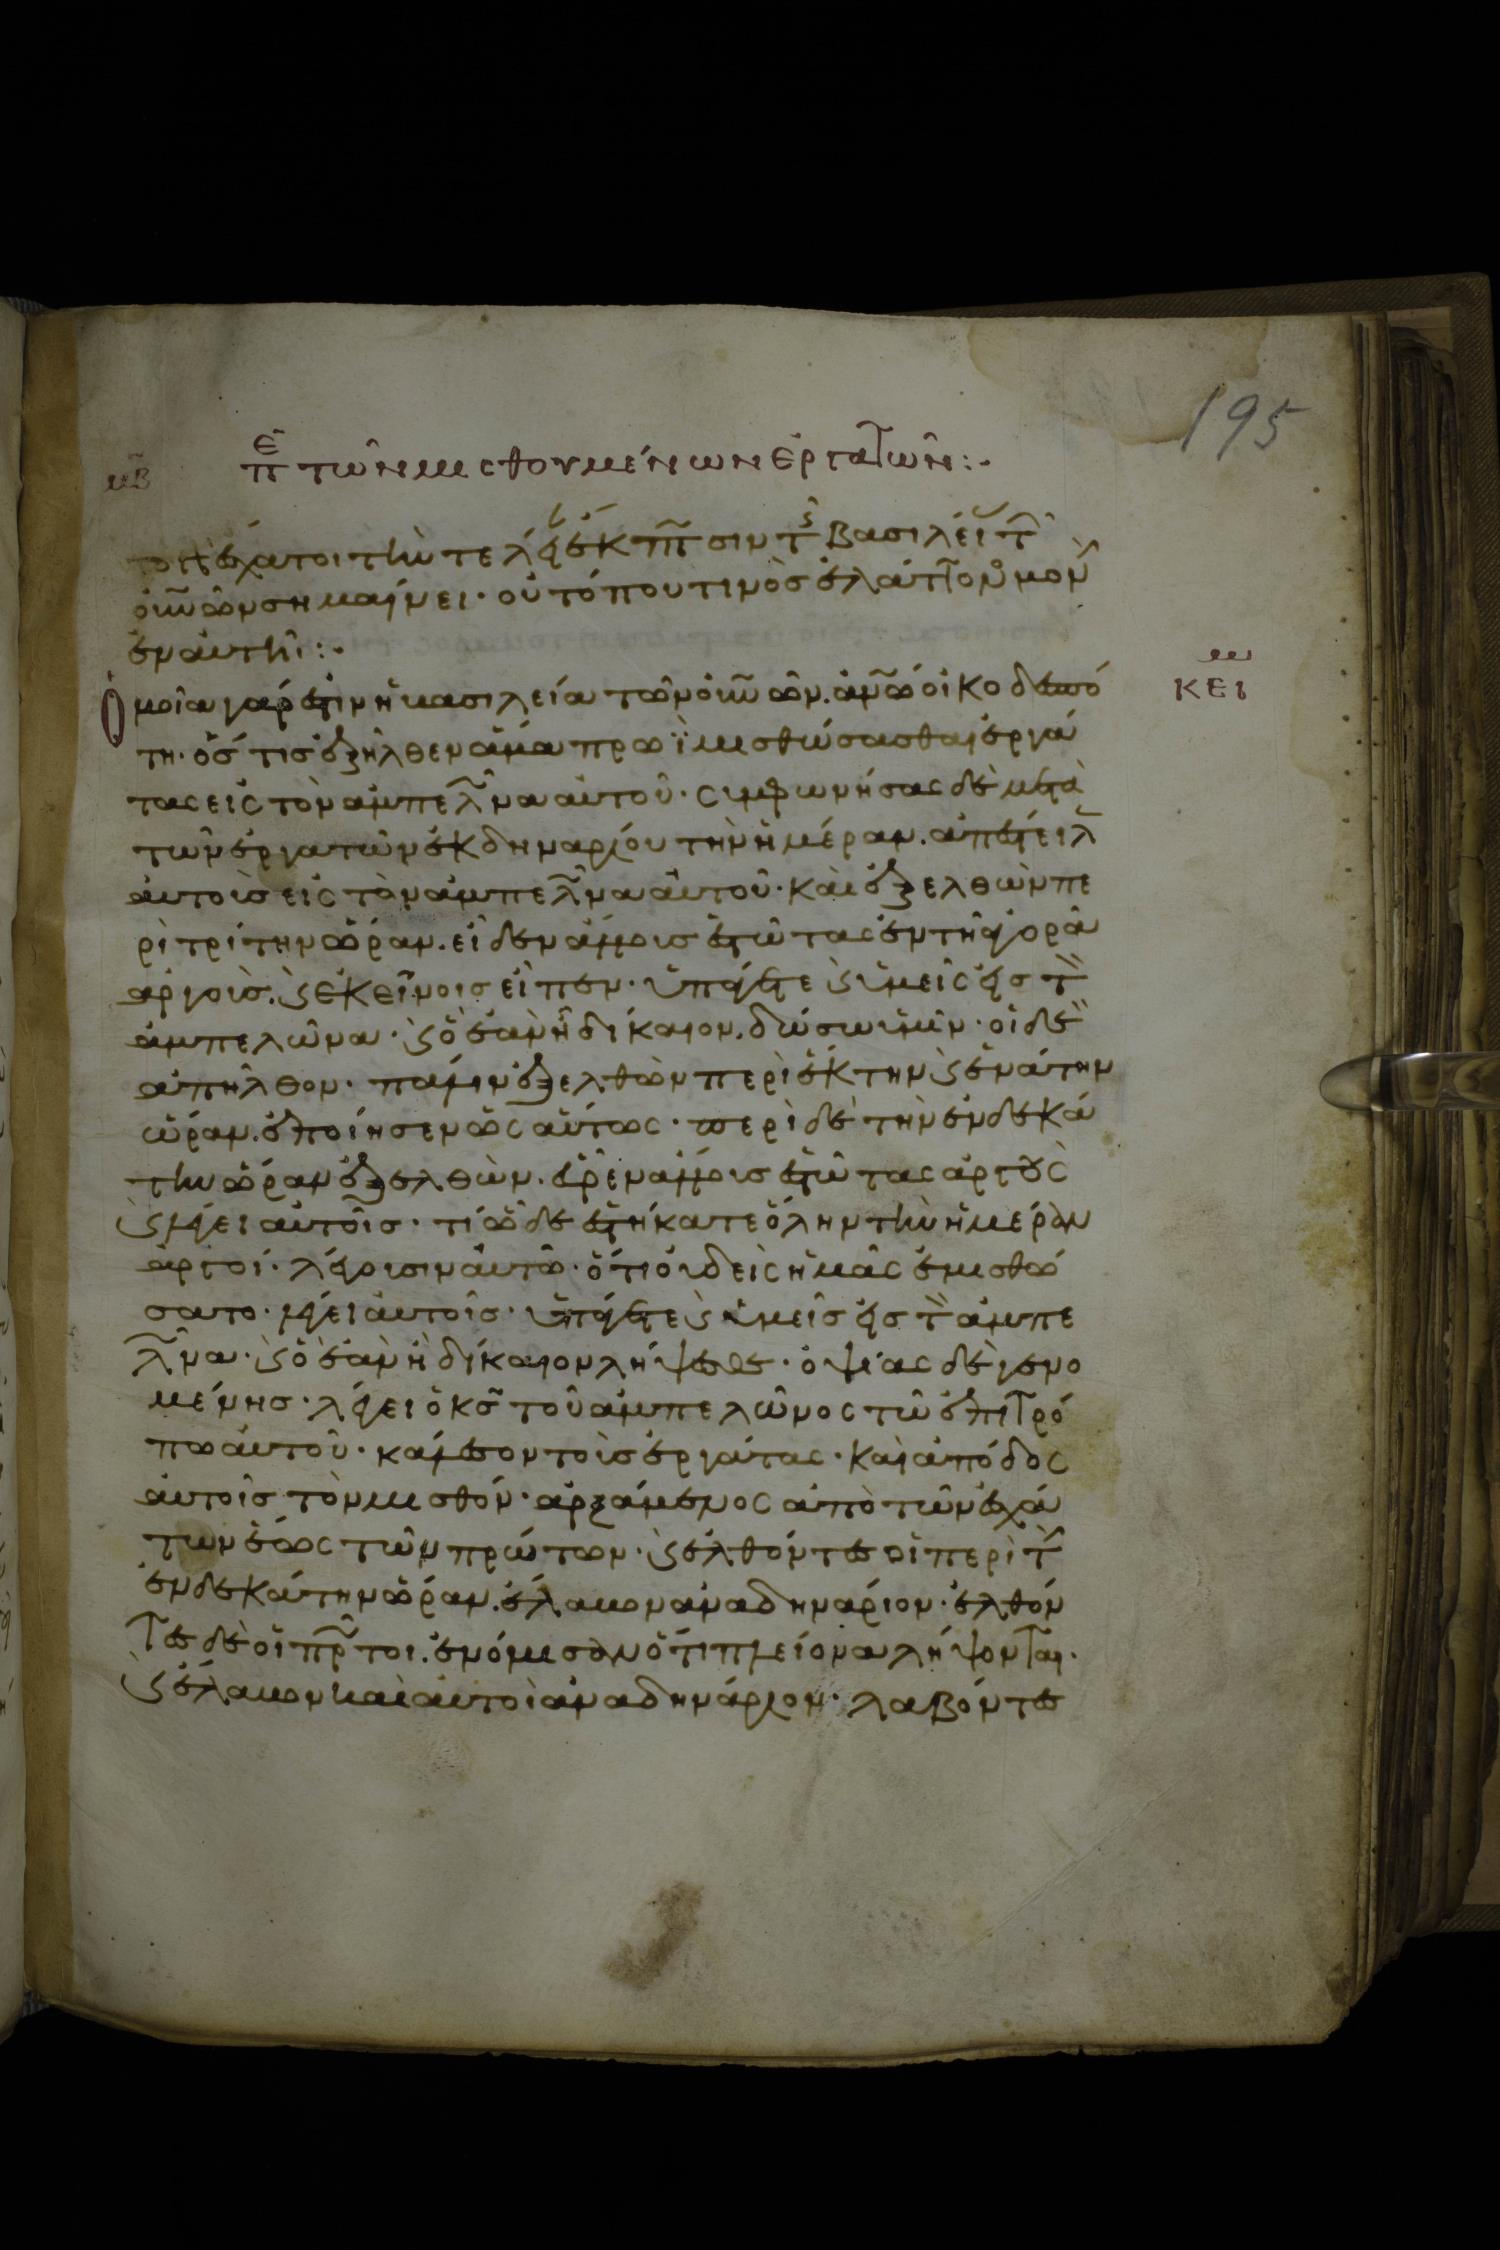 195
μβ̄
πε̄ τῶν μισθουμένων ἐργατῶν :·
ἐν αὐτῆ :·
κει
Ὁμοία γάρ ἐστιν ἡ βασιλεία τῶν οὐνῶν. ἀνῶ οἰκοδεσπό
τη· ὅστις ἐξῆλθεν ἅμα πρωῒ μισθώσασθαι ἐργά
τας εἰς τὸν ἀμπελῶνα αὐτοῦ· συμφωνήσας δὲ μετὰ
τῶν ἐργατῶν ἐκ δηναρίου τὴν ἡμέραν. ἀπέστειλ
αὐτοὺς εἰς τὸν ἀμπελῶνα αὐτοῦ· καὶ ἐξελθὼν πε
ρὶ τρίτην ὥραν. εἶδεν ἄλλους ἑστῶτας ἐν τῆ ἀγορᾶ
ἀργούς. ϛ ἐκείνοις εἶπεν· ὑπάγετε ϛ ὑμεῖς εἰς τὸν
ἀμπελῶνα· ϛ ὃ ἐὰν ἦ δίκαιον, δώσω ὑμῖν· οἱ δὲ
ἀπῆλθον· πάλιν ἐξελθὼν περὶ ἕκτην ϛ ἐνάτην
ὥραν. ἐποίησεν ὡσαύτως· περὶ δὲ τὴν ἑνδεκά
την ὥραν ἐξελθὼν. εὗρεν ἄλλους ἑστῶτας ἀργοὺς
ϛ λέγει αὐτοῖς· τί ὧδε ἑστήκατε ὅλην τὴν ἡμέραν
ἀργοί· λέγουσιν αὐτῶ· ὅτι οὐδεὶς ἡμᾶς ἐμισθώ
σατο· λέγει αὐτοῖς· ὑπάγετε ϛ ὑμεῖς εἰς τὸν ἀμπε
λῶνα· ϛ ὃ ἐὰν ἦ δίκαιον λήψεσθε· ὀψίας δὲ γενο
μένης· λέγει ὁ κς̄ τοῦ ἀμπελῶνος τῶ ἐπιτρό
πω αὐτοῦ· κάλεσον τοὺς ἐργάτας· καὶ ἀπόδος
αὐτοῖς τὸν μισθόν· ἀρξάμενος ἀπὸ τῶν ἐσχά
των ἕως τῶν πρώτων· ϛ ἐλθόντες οἱ περὶ τὴν
ἑνδεκάτην ὥραν. ἔλαβον ἀνα δηνάριον· ἐλθόν
τες δὲ οἱ πρῶτοι. ἐνόμισαν ὅτι πλείονα λήψονται·
ϛ ἔλαβον καὶ αὐτοὶ ἀνα δηνάριον· λαβόντες